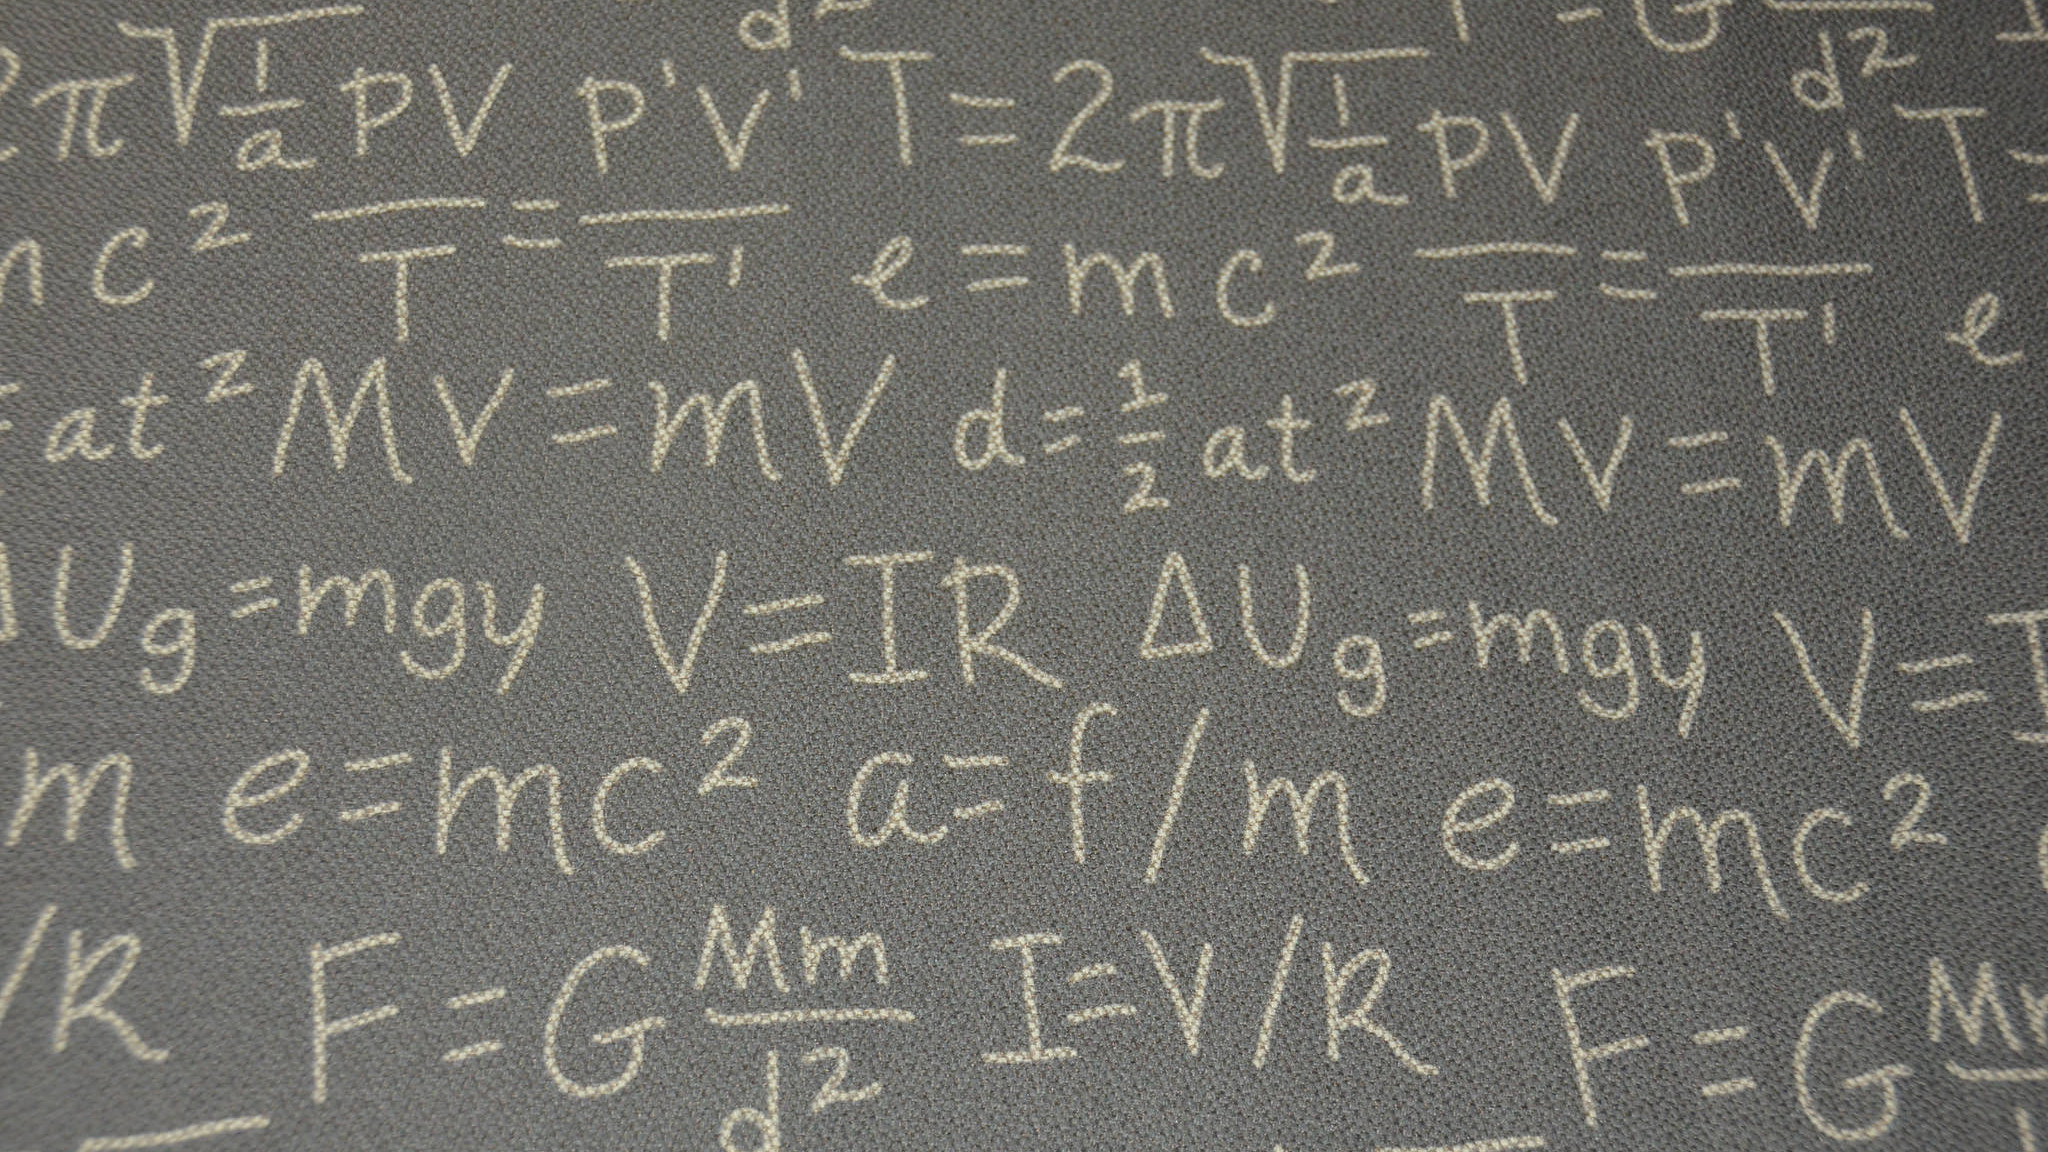 d² T = G d² I
2π√1/a PV P'V' T = 2π√1/a PV P'V' T =
mc² T = T' e = mc² T = T' e
= at² Mv = mV d = 1/2 at² Mv = mV
ΔUg = mgy V = IR ΔUg = mgy V = I
m e = mc² a = f/m e = mc²
/R F = G Mm/d² I = V/R F = G Mm